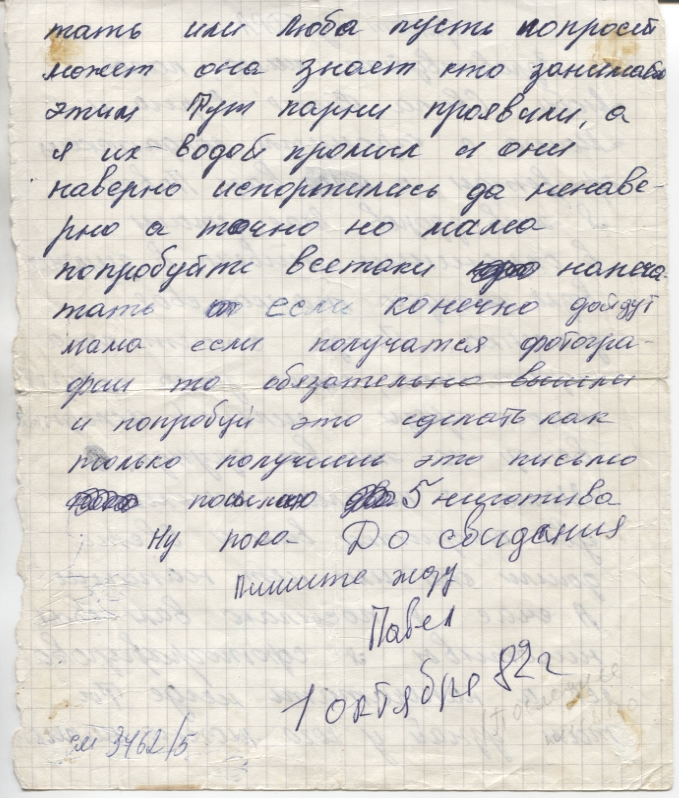 тать или Люба пусть попросит
может она знает кто занимается
этим Тут парни проявили, а
я их водой промыл и они
наверно испортились да ненаве-
рно а точно но мама
попробуйте всетаки напеча-
тать если конечно дойдут
мама если получатся фотогра-
фии то обязательно вышли
и попробуй это сделать как
только получишь это письмо
посылаю 5 ниготива
Ну пока До свидания
Пишите жду
Павел
1 октября 82 г
см 3462/5